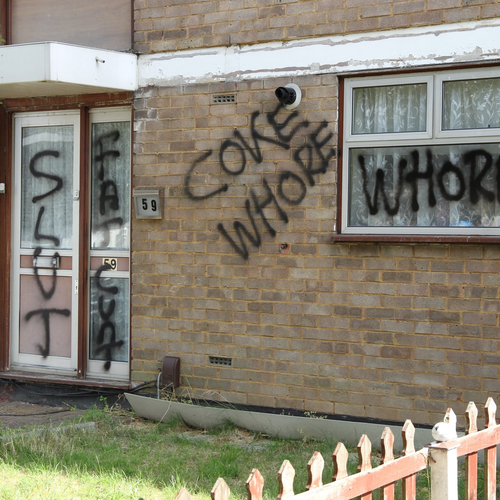 SLUT
FAT CUNT
59
59
COKE
WHORE
WHORE